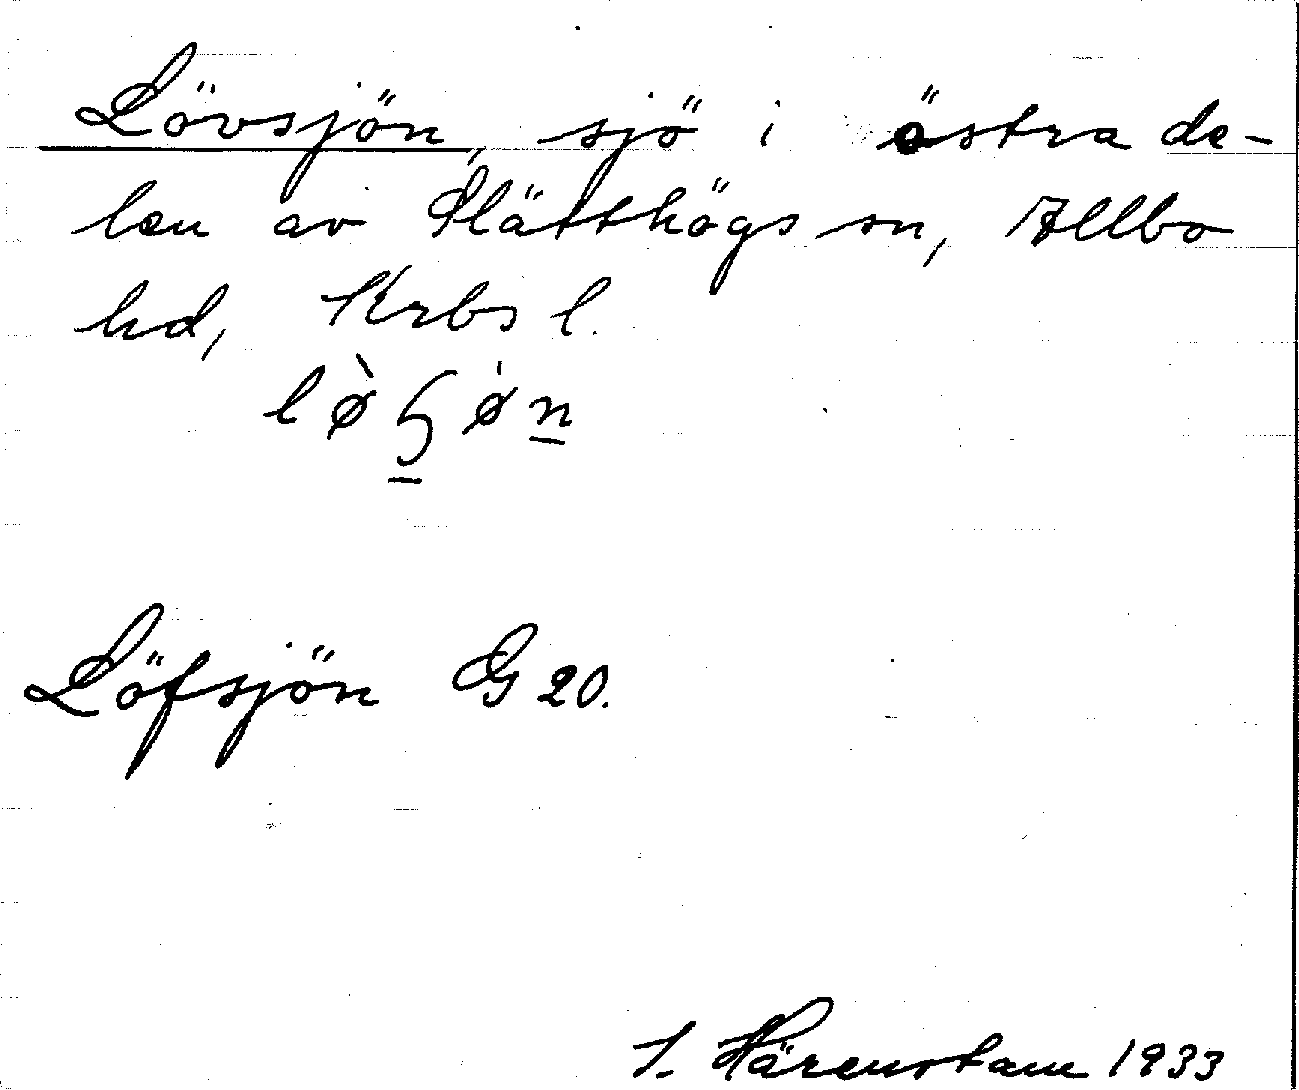 Lövsjön, sjö i östra de-
len av Slätthögs sn, Allbo
hd, Krbs l.
Löfsjön G 20.
Härenstam 1933